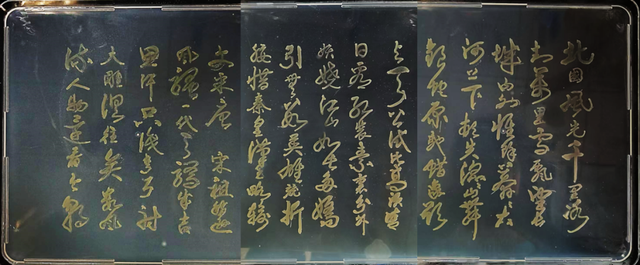 北國風光千里冰
封萬里雪飘望长
城内外惟馀莽莽大
河上下顿失滔滔山舞
银蛇原驰腊象欲
与天公试比高须晴
日看红装素裹分外
妖娆江山如此多娇
引无数英雄竞折
腰惜秦皇汉武略输
文采唐宗宋祖稍逊
风骚一代天骄成吉
思汗只识弯弓射
大雕俱往矣数风
流人物还看今朝